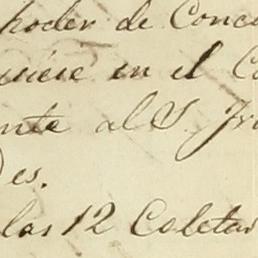 poder de Conc
en el C
nte al S. Fr
es.
las 12 Coletas